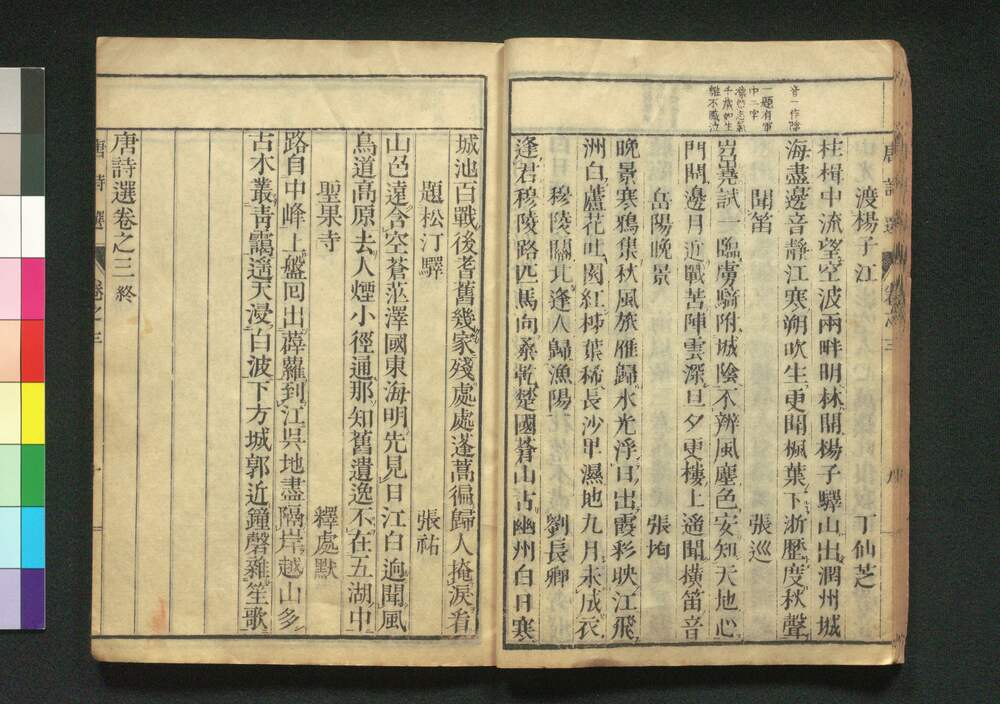 唐詩選 卷之三 九
音一作陰
一題有軍
中二字
千歳如生
誰不感泣
渡楊子江 丁仙芝
桂楫中流望空波兩畔明林開楊子驛山出潤州城
海盡邊音靜江寒朔吹生更聞楓葉下淅歷度秋聲
聞笛 張巡
岧嶤試一臨虜騎附城陰不辨風塵色安知天地心
門開邊月近戰苦陣雲深旦夕更樓上遙聞橫笛音
岳陽晚景 張均
晚景寒鴉集秋風旅雁歸水光浮日出霞彩映江飛
洲白蘆花吐園紅柹葉稀長沙卑濕地九月未成衣
穆陵關北逢人歸漁陽 劉長卿
逢君穆陵路匹馬向桑乾楚國蒼山古幽州白日寒
城池百戰後耆舊幾家殘處處蓬蒿徧歸人掩淚看
題松汀驛 張祐
山色遠含空蒼茫澤國東海明先見日江白逈聞風
鳥道高原去人煙小徑通那知舊遺逸不在五湖中
聖果寺 釋處默
路自中峰上盤囘出薜蘿到江吳地盡隔岸越山多
古木叢青靄遙天浸白波下方城郭近鐘磬雜笙歌
唐詩選卷之三終
唐詩選 卷之三 十